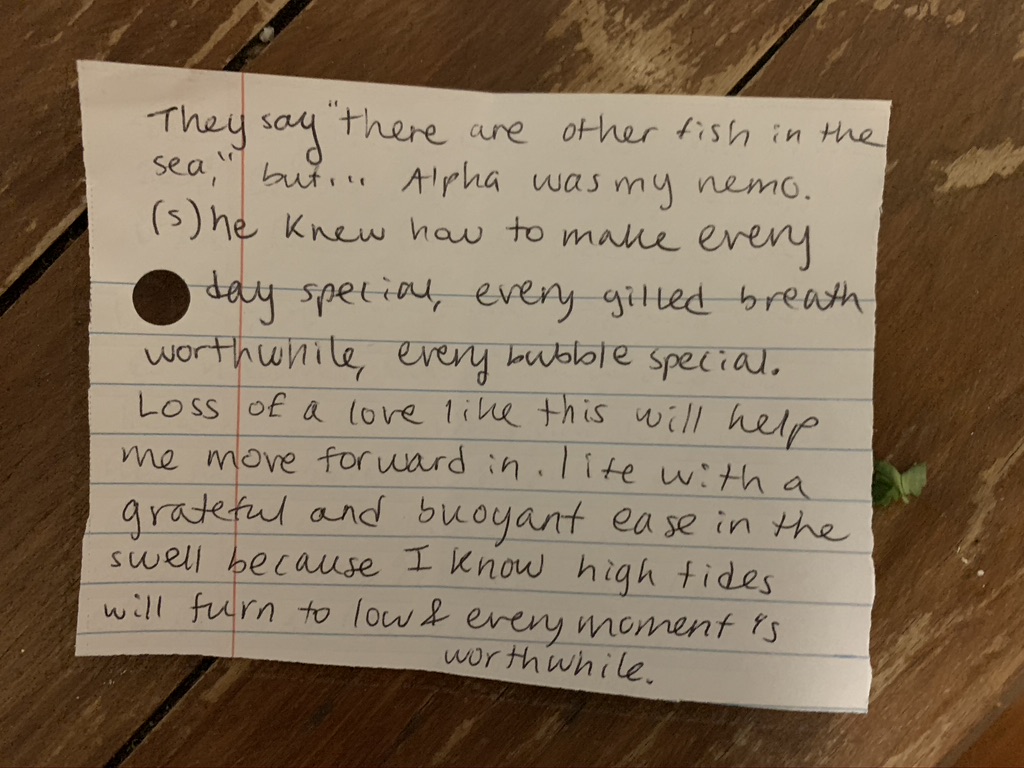 They say "there are other fish in the
sea," but... Alpha was my nemo.
(s)he knew how to make every
day special, every gilled breath
worthwhile, every bubble special.
Loss of a love like this will help
me move forward in. life with a
grateful and buoyant ease in the
swell because I know high tides
will turn to low & every moment is
worthwhile.